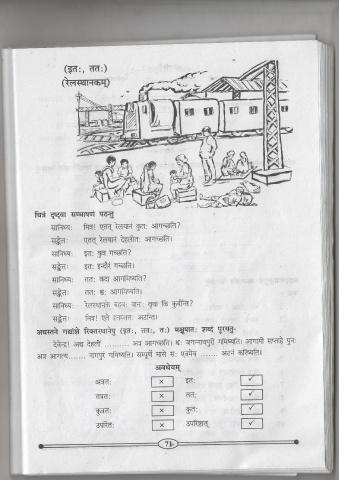 (इतः, ततः)
(रेलस्थानकम्)
चित्रं दृष्ट्वा सम्भाषणं पठन्तु
सान्निध्यः मित्र! एतत् रेलयानं कुतः आगच्छति?
सङ्केतः एतत् रेलयानं देहलीतः आगच्छति।
सान्निध्यः इतः कुत्र गच्छति?
सङ्केतः इतः इन्दौरं गच्छति।
सान्निध्यः ततः कदा आगमिष्यति?
सङ्केतः ततः श्वः आगमिष्यति।
सान्निध्यः रेलस्थानके बहवः जनाः वृथा किं कुर्वन्ति?
सङ्केतः मित्र! एते इतस्ततः अटन्ति।
अधस्तने गद्यांशे रिक्तस्थानेषु (इतः, ततः, तः) मञ्जूषातः शब्दं पूरयतु-
देवेन्द्रः अद्य देहली ......... अत्र आगच्छति। श्वः जगन्नाथपुरीं गमिष्यति। आगामी सप्ताहे पुनः
अत्र आगत्य ...... नागपुरं गमिष्यति। सम्पूर्णे मासे सः एवमेव ....... अटनं करिष्यति।
अवधेयम्
अत्रतः × इतः ✓
तत्रतः × ततः ✓
कुत्रतः × कुतः ✓
उपरितः × उपरिष्टात् ✓
71